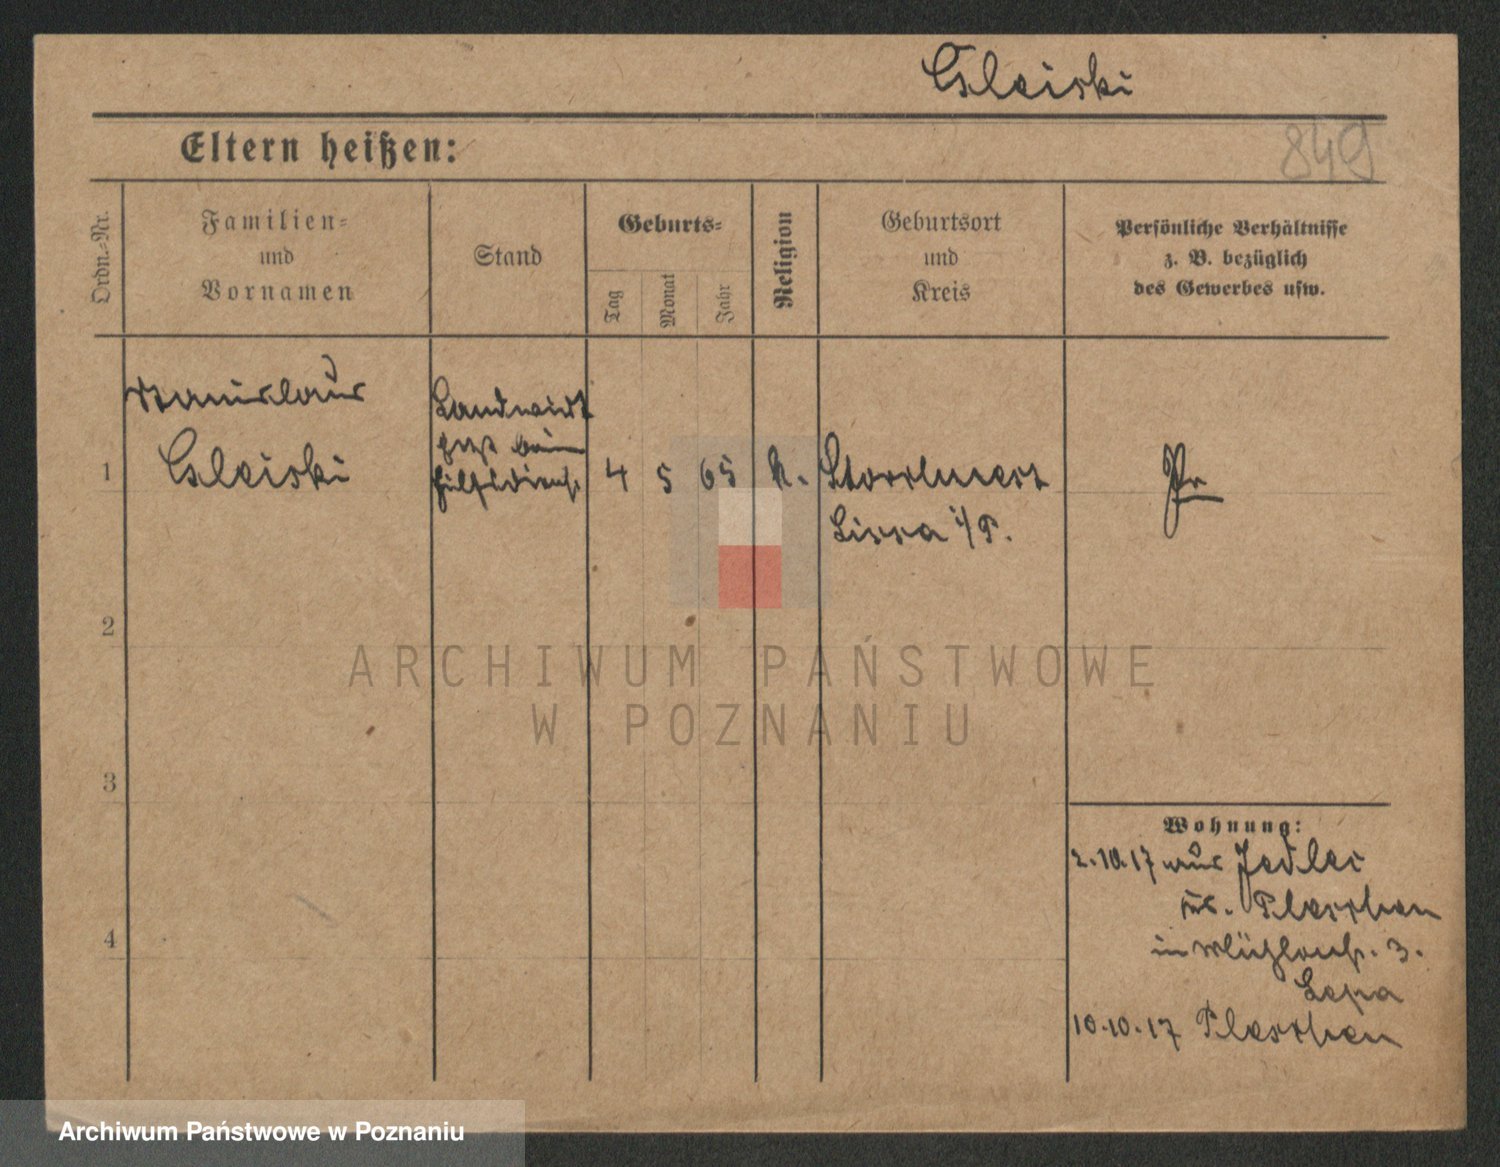 Gleiski
849
Eltern heißen:
Ordn.-Nr.
Familien-
und
Vornamen
Stand
Geburts-
Tag
Monat
Jahr
Religion
Geburtsort
und
Kreis
Persönliche Verhältnisse
z. B. bezüglich
des Gewerbes usw.
Stanislaus
Gleiski
Landwirt
beim
Hilfsdienst
1
4 5 65
K.
Storchnest
Lissa i/P.
Pr
2
3
4
Wohnung:
2.10.17 aus Jedlec
Kr. Pleschen
in 3.
10.10.17 Pleschen
ARCHIWUM PAŃSTWOWE
W POZNANIU
Archiwum Państwowe w Poznaniu